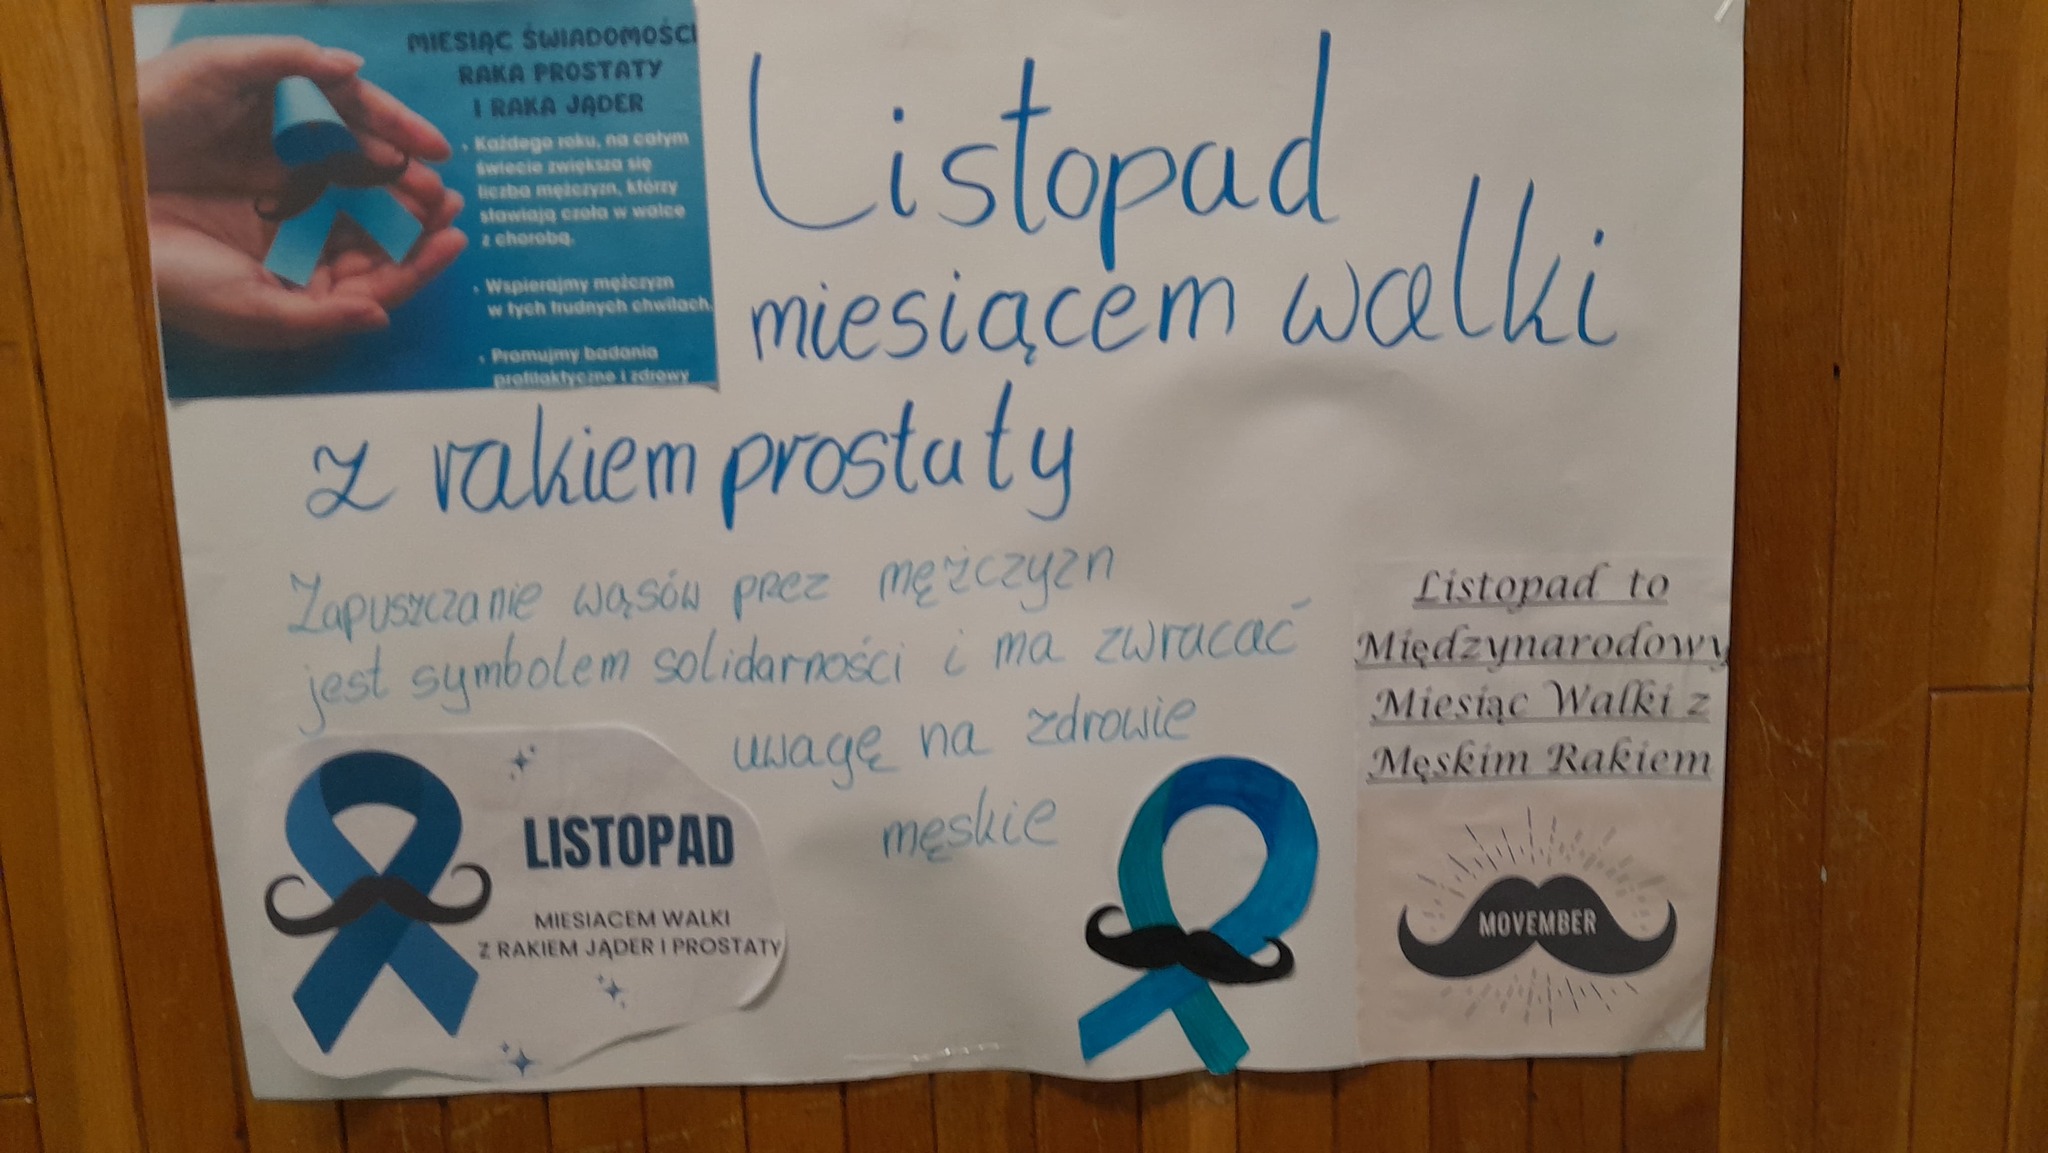 MIESIĄC ŚWIADOMOŚCI
RAKA PROSTATY
I RAKA JĄDER
• Każdego roku, na całym
świecie zwiększa się
liczba mężczyzn, którzy
stawiają czoła w walce
z chorobą.
• Wspierajmy mężczyzn
w tych trudnych chwilach.
• Promujmy badania
profilaktyczne i zdrowy
Listopad
miesiącem walki
z rakiem prostaty
Zapuszczanie wąsów prez mężczyzn
jest symbolem solidarności i ma zwracać
uwagę na zdrowie
męskie
LISTOPAD
MIESIACEM WALKI
Z RAKIEM JĄDER I PROSTATY
Listopad to
Międzynarodowy
Miesiąc Walki z
Męskim Rakiem
MOVEMBER